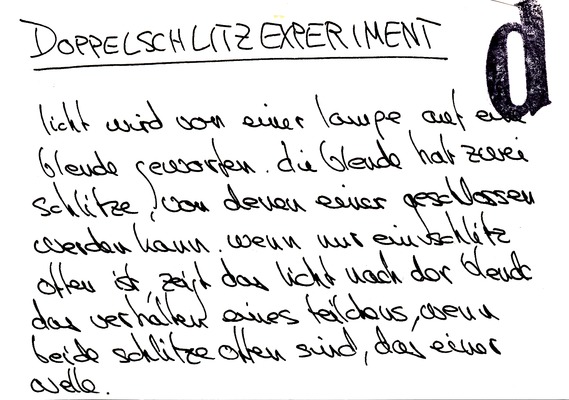 DOPPELSCHLITZEXPERIMENT
d
licht wird von einer lampe auf eine
blende geworfen. die blende hat zwei
schlitze, von denen einer geschlossen
werden kann. wenn nur ein schlitz
offen ist, zeigt das licht nach der blende
das verhalten eines teilchens, wenn
beide schlitze offen sind, das einer
welle.